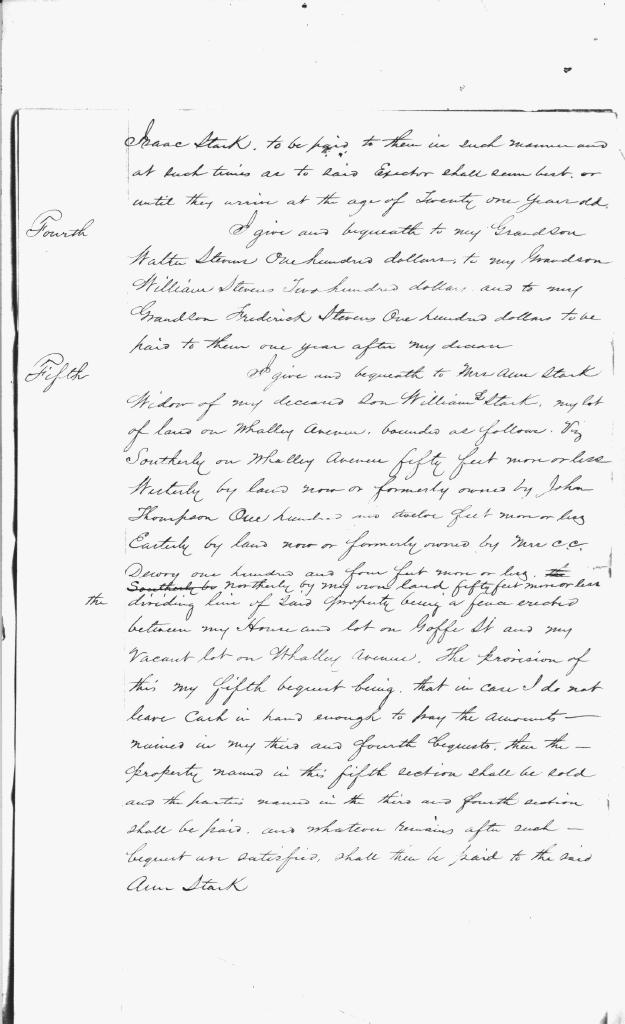 Isaac Stark, to be paid to them in such manner and
at such times as to said Exector shall seem best, or
until they arrive at the age of Twenty one Years old.
Fourth I give and bequeath to my Grandson
Walter Stevens One hundred dollars, to my Grandson
William Stevens Two hundred dollars, and to my
Grandson Frederick Stevens One hundred dollars to be
paid to them one year after my decease
Fifth I give and bequeath to Mrs Ann Stark
Widow of my deceased Son William S Stark, my lot
of land on Whalley Avenue, bounded as follows. Viz
Southerly on Whalley Avenue fifty feet more or less
Westerly by land now or formerly owned by John
Thompson One hundred and twelve feet more or less
Easterly by land now or formerly owned by Mrs C.C.
one hundred and four feet more or less, the
Southerly by Northerly by my own land fifty feet more or less
the dividing line of said property being a fence erected
between my House and lot on Goffe St and my
Vacant lot on Whalley Avenue. The provision of
this my fifth bequest being, that in case I do not
leave Cash in hand enough to pay the amounts —
named in my third and fourth bequests, then the —
property named in this fifth section shall be sold
and the parties named in the third and fourth section
shall be paid, and whatever remains after such —
bequest are satisfied, shall then be paid to the said
Ann Stark